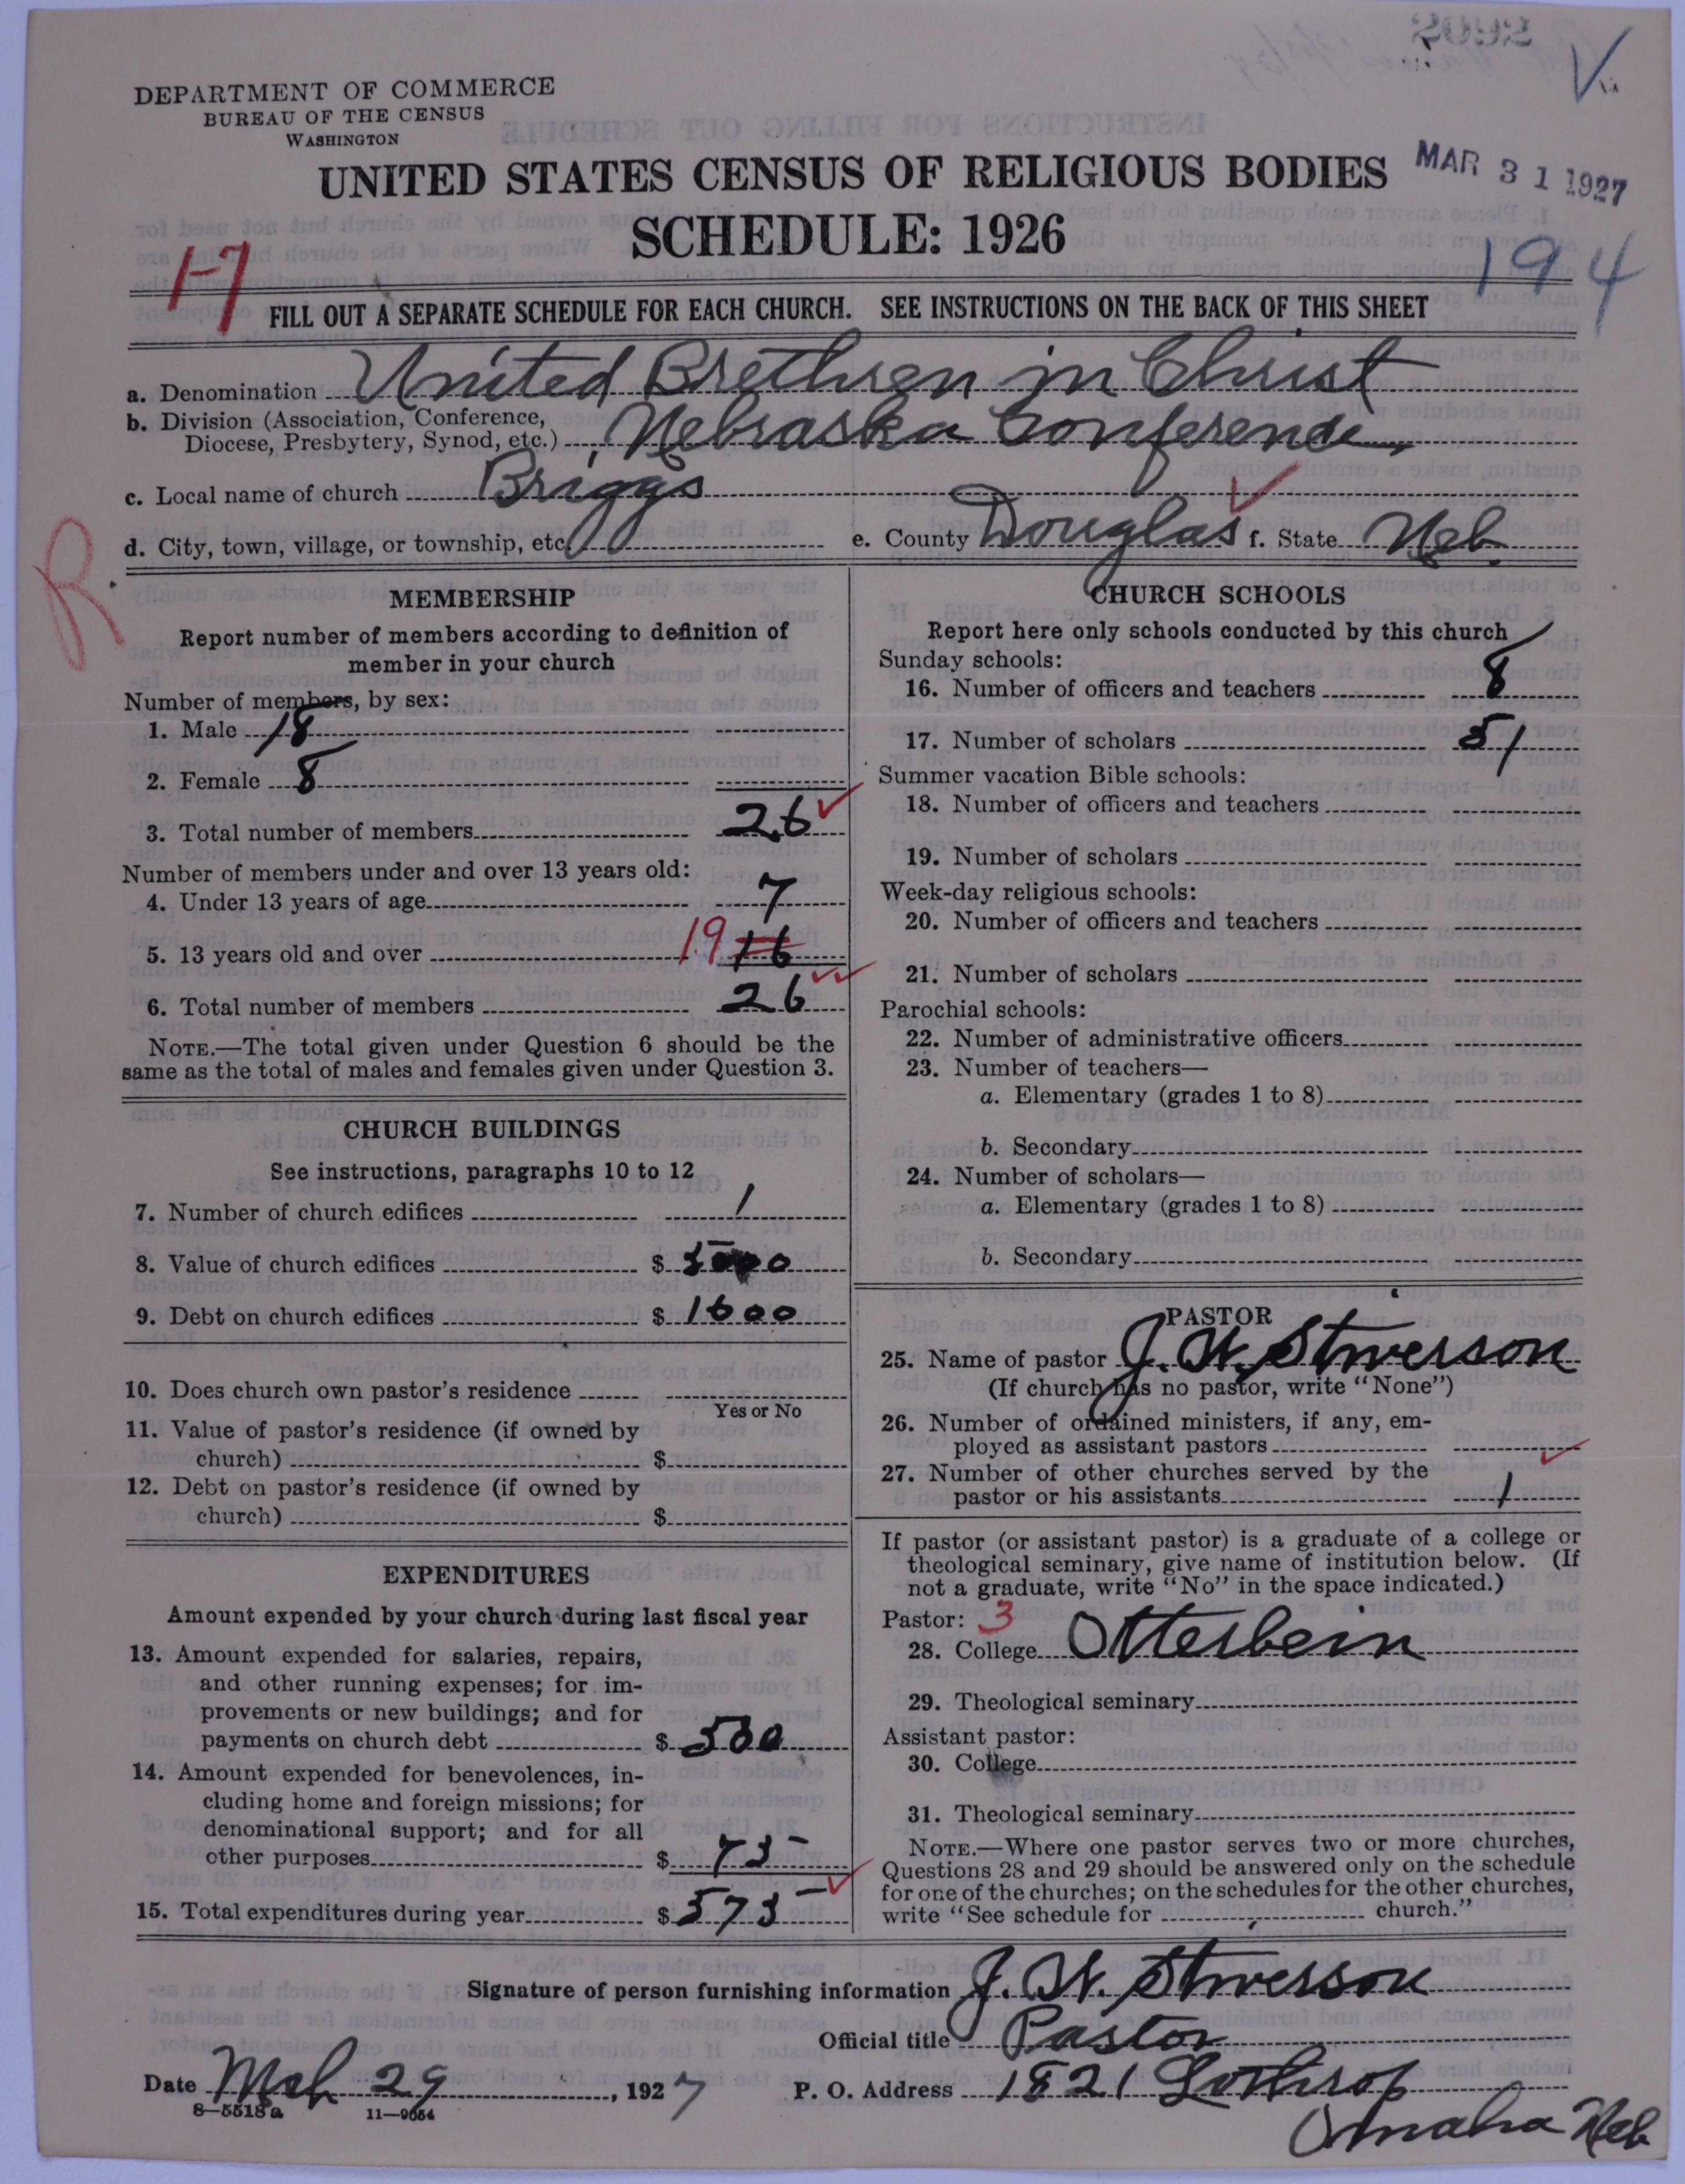 DEPARTMENT OF COMMERCE
BUREAU OF THE CENSUS
WASHINGTON
UNITED STATES CENSUS OF RELIGIOUS BODIES
MAR 31 1927
SCHEDULE: 1926
194
17
FILL OUT A SEPARATE SCHEDULE FOR EACH CHURCH. SEE INSTRUCTIONS ON THE BACK OF THIS SHEET
a. Denomination United Brethren in Christ
b. Division (Association, Conference,
Diocese, Presbytery, Synod, etc.) Nebraska Conference
c. Local name of church Briggs
d. City, town, village, or township, etc. e. County Douglas f. State Neb.
R
MEMBERSHIP
Report number of members according to definition of
member in your church
Number of members, by sex:
1. Male 18
2. Female 8
3. Total number of members 26
Number of members under and over 13 years old:
4. Under 13 years of age 7
5. 13 years old and over 19 16
6. Total number of members 26
NOTE.—The total given under Question 6 should be the
same as the total of males and females given under Question 3.
CHURCH BUILDINGS
See instructions, paragraphs 10 to 12
7. Number of church edifices 1
8. Value of church edifices $ 5000
9. Debt on church edifices $ 1600
10. Does church own pastor's residence
Yes or No
11. Value of pastor's residence (if owned by
church) $
12. Debt on pastor's residence (if owned by
church) $
EXPENDITURES
Amount expended by your church during last fiscal year
13. Amount expended for salaries, repairs,
and other running expenses; for im-
provements or new buildings; and for
payments on church debt $ 500
14. Amount expended for benevolences, in-
cluding home and foreign missions; for
denominational support; and for all
other purposes $ 75
15. Total expenditures during year $ 575
CHURCH SCHOOLS
Report here only schools conducted by this church
Sunday schools:
16. Number of officers and teachers 8
17. Number of scholars 51
Summer vacation Bible schools:
18. Number of officers and teachers
19. Number of scholars
Week-day religious schools:
20. Number of officers and teachers
21. Number of scholars
Parochial schools:
22. Number of administrative officers
23. Number of teachers—
a. Elementary (grades 1 to 8)
b. Secondary
24. Number of scholars—
a. Elementary (grades 1 to 8)
b. Secondary
PASTOR
25. Name of pastor J. W. Stiverson
(If church has no pastor, write "None")
26. Number of ordained ministers, if any, em-
ployed as assistant pastors
27. Number of other churches served by the
pastor or his assistants 1
If pastor (or assistant pastor) is a graduate of a college or
theological seminary, give name of institution below. (If
not a graduate, write "No" in the space indicated.)
Pastor: 3
28. College Otterbein
29. Theological seminary
Assistant pastor:
30. College
31. Theological seminary
NOTE.—Where one pastor serves two or more churches,
Questions 28 and 29 should be answered only on the schedule
for one of the churches; on the schedules for the other churches,
write "See schedule for church."
Signature of person furnishing information J. W. Stiverson
Official title Pastor
Date Mch 29, 1927 P. O. Address 1821 Lothrop
Omaha Neb
8—5518a 11—9654